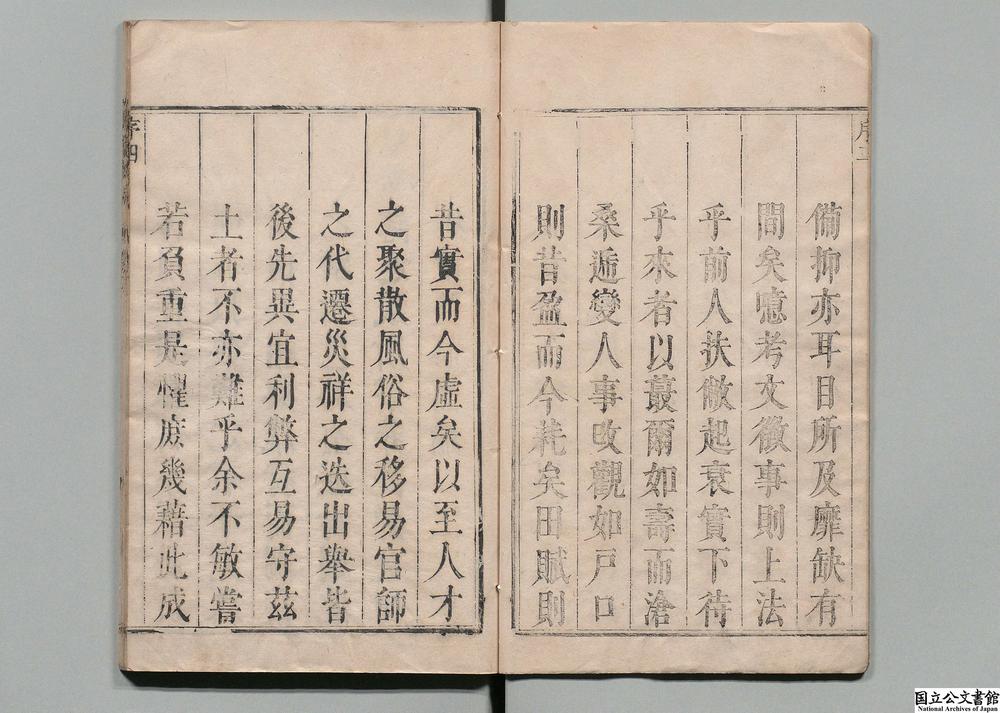 備抑亦耳目所及靡缺有
間矣噫考文徵事則上法
乎前人扶敝起衰實下待
乎來者以蕞爾如壽而滄
桑遞變人事改觀如戸口
則昔盈而今耗矣田賦則
昔實而今虛矣以至人才
之聚散風俗之移易官師
之代遷災祥之迭出舉皆
後先異宜利弊互易守茲
土者不亦難乎余不敏嘗
若負重是懼庶幾藉此成
序四
国立公文書館
National Archives of Japan